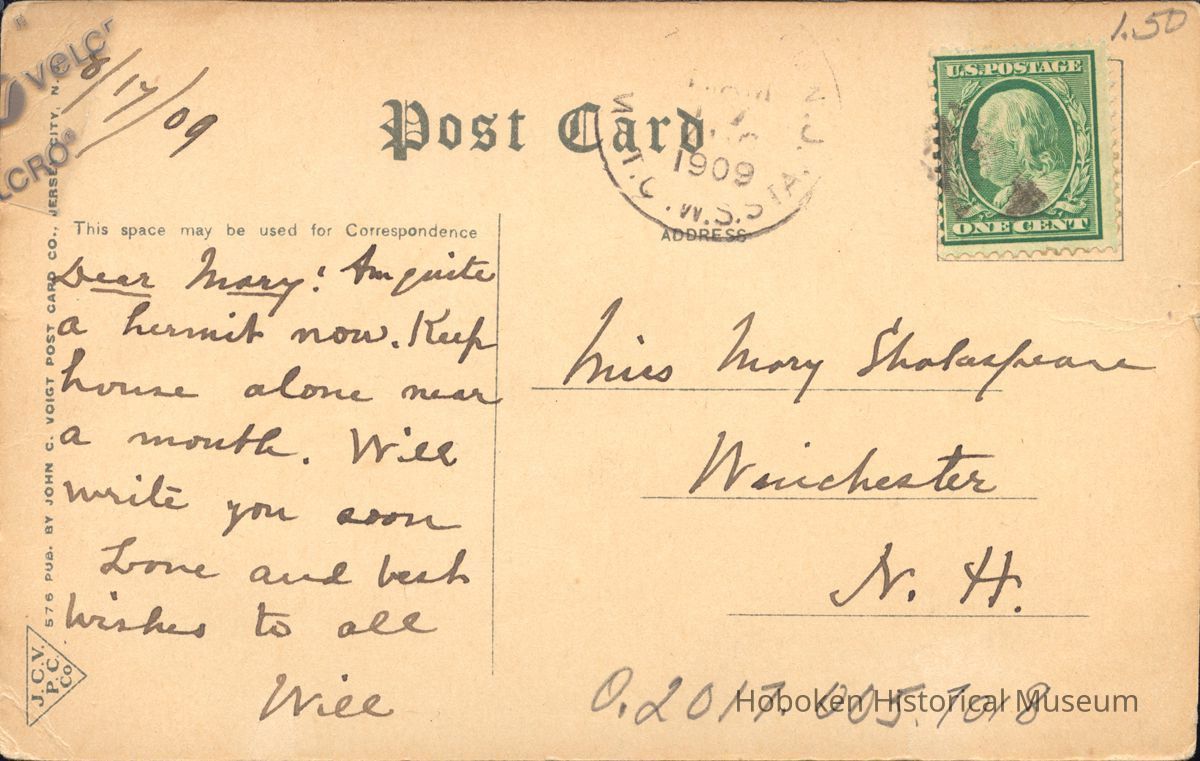 1.50
VELCR
LCRO®
8/17/09
Post Card
1909
W.S.STA.
U.S.POSTAGE
ONE CENT
This space may be used for Correspondence
ADDRESS
Dear Mary! Am quite
a hermit now. Keep
house alone near
a month. Will
write you soon
Love and best
wishes to all
Will
Miss Mary Shakespeare
Winchester
N. H.
576 PUB. BY JOHN C. VOIGT POST CARD CO., JERSEY CITY, N.
J.C.V.
P.C.
Co.
O.2017.005.
Hoboken Historical Museum